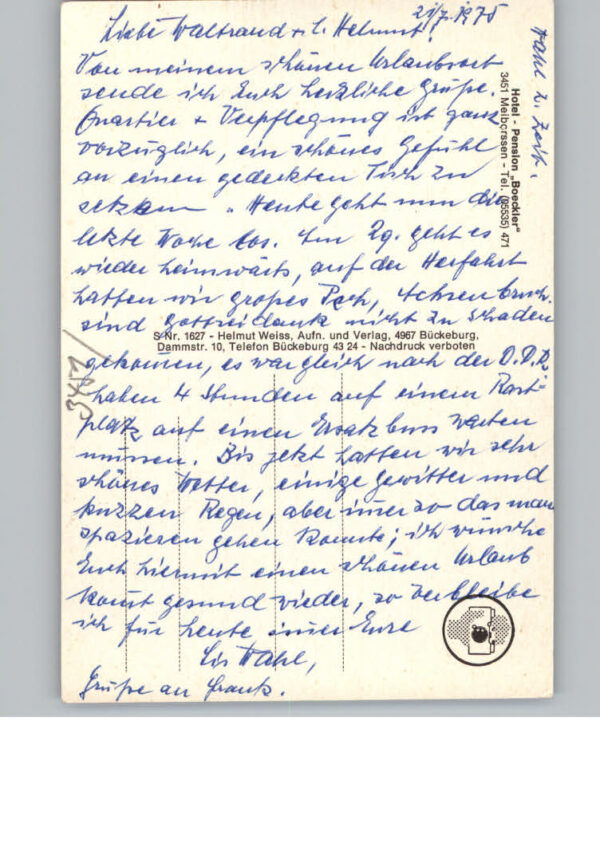 21/7. 1975
Liebe Waltraud + l. Helmut!
Von meinem schönen Urlaubsort
sende ich Euch herzliche Grüße.
Quartier + Verpflegung ist ganz
vorzüglich, ein schönes Gefühl
an einen gedeckten Tisch zu
setzen. Heute geht nun die
letzte Woche los. Am 29. geht es
wieder heimwärts, auf der Herfahrt
hatten wir großes Pech, Achsenbruch.
sind Gottseidank nicht zu Schaden
gekommen, es war gleich nach der D.D.R.
haben 4 Stunden auf einem Rast-
platz auf einen Ersatzbuss warten
müssen. Bis jetzt hatten wir sehr
schönes Wetter, einige Gewitter und
kurzen Regen, aber immer so das man
spazieren gehen konnte; ich wünsche
Euch hiermit einen schönen Urlaub
kommt gesund wieder, so verbleibe
ich für heute immer Eure
Lis Wahl,
Grüße an Frank.
Wahl z. Zeit.
Hotel - Pension „Boeckler"
3451 Meiborssen - Tel. (05535) 471
S Nr. 1627 - Helmut Weiss, Aufn. und Verlag, 4967 Bückeburg,
Dammstr. 10, Telefon Bückeburg 43 24 - Nachdruck verboten